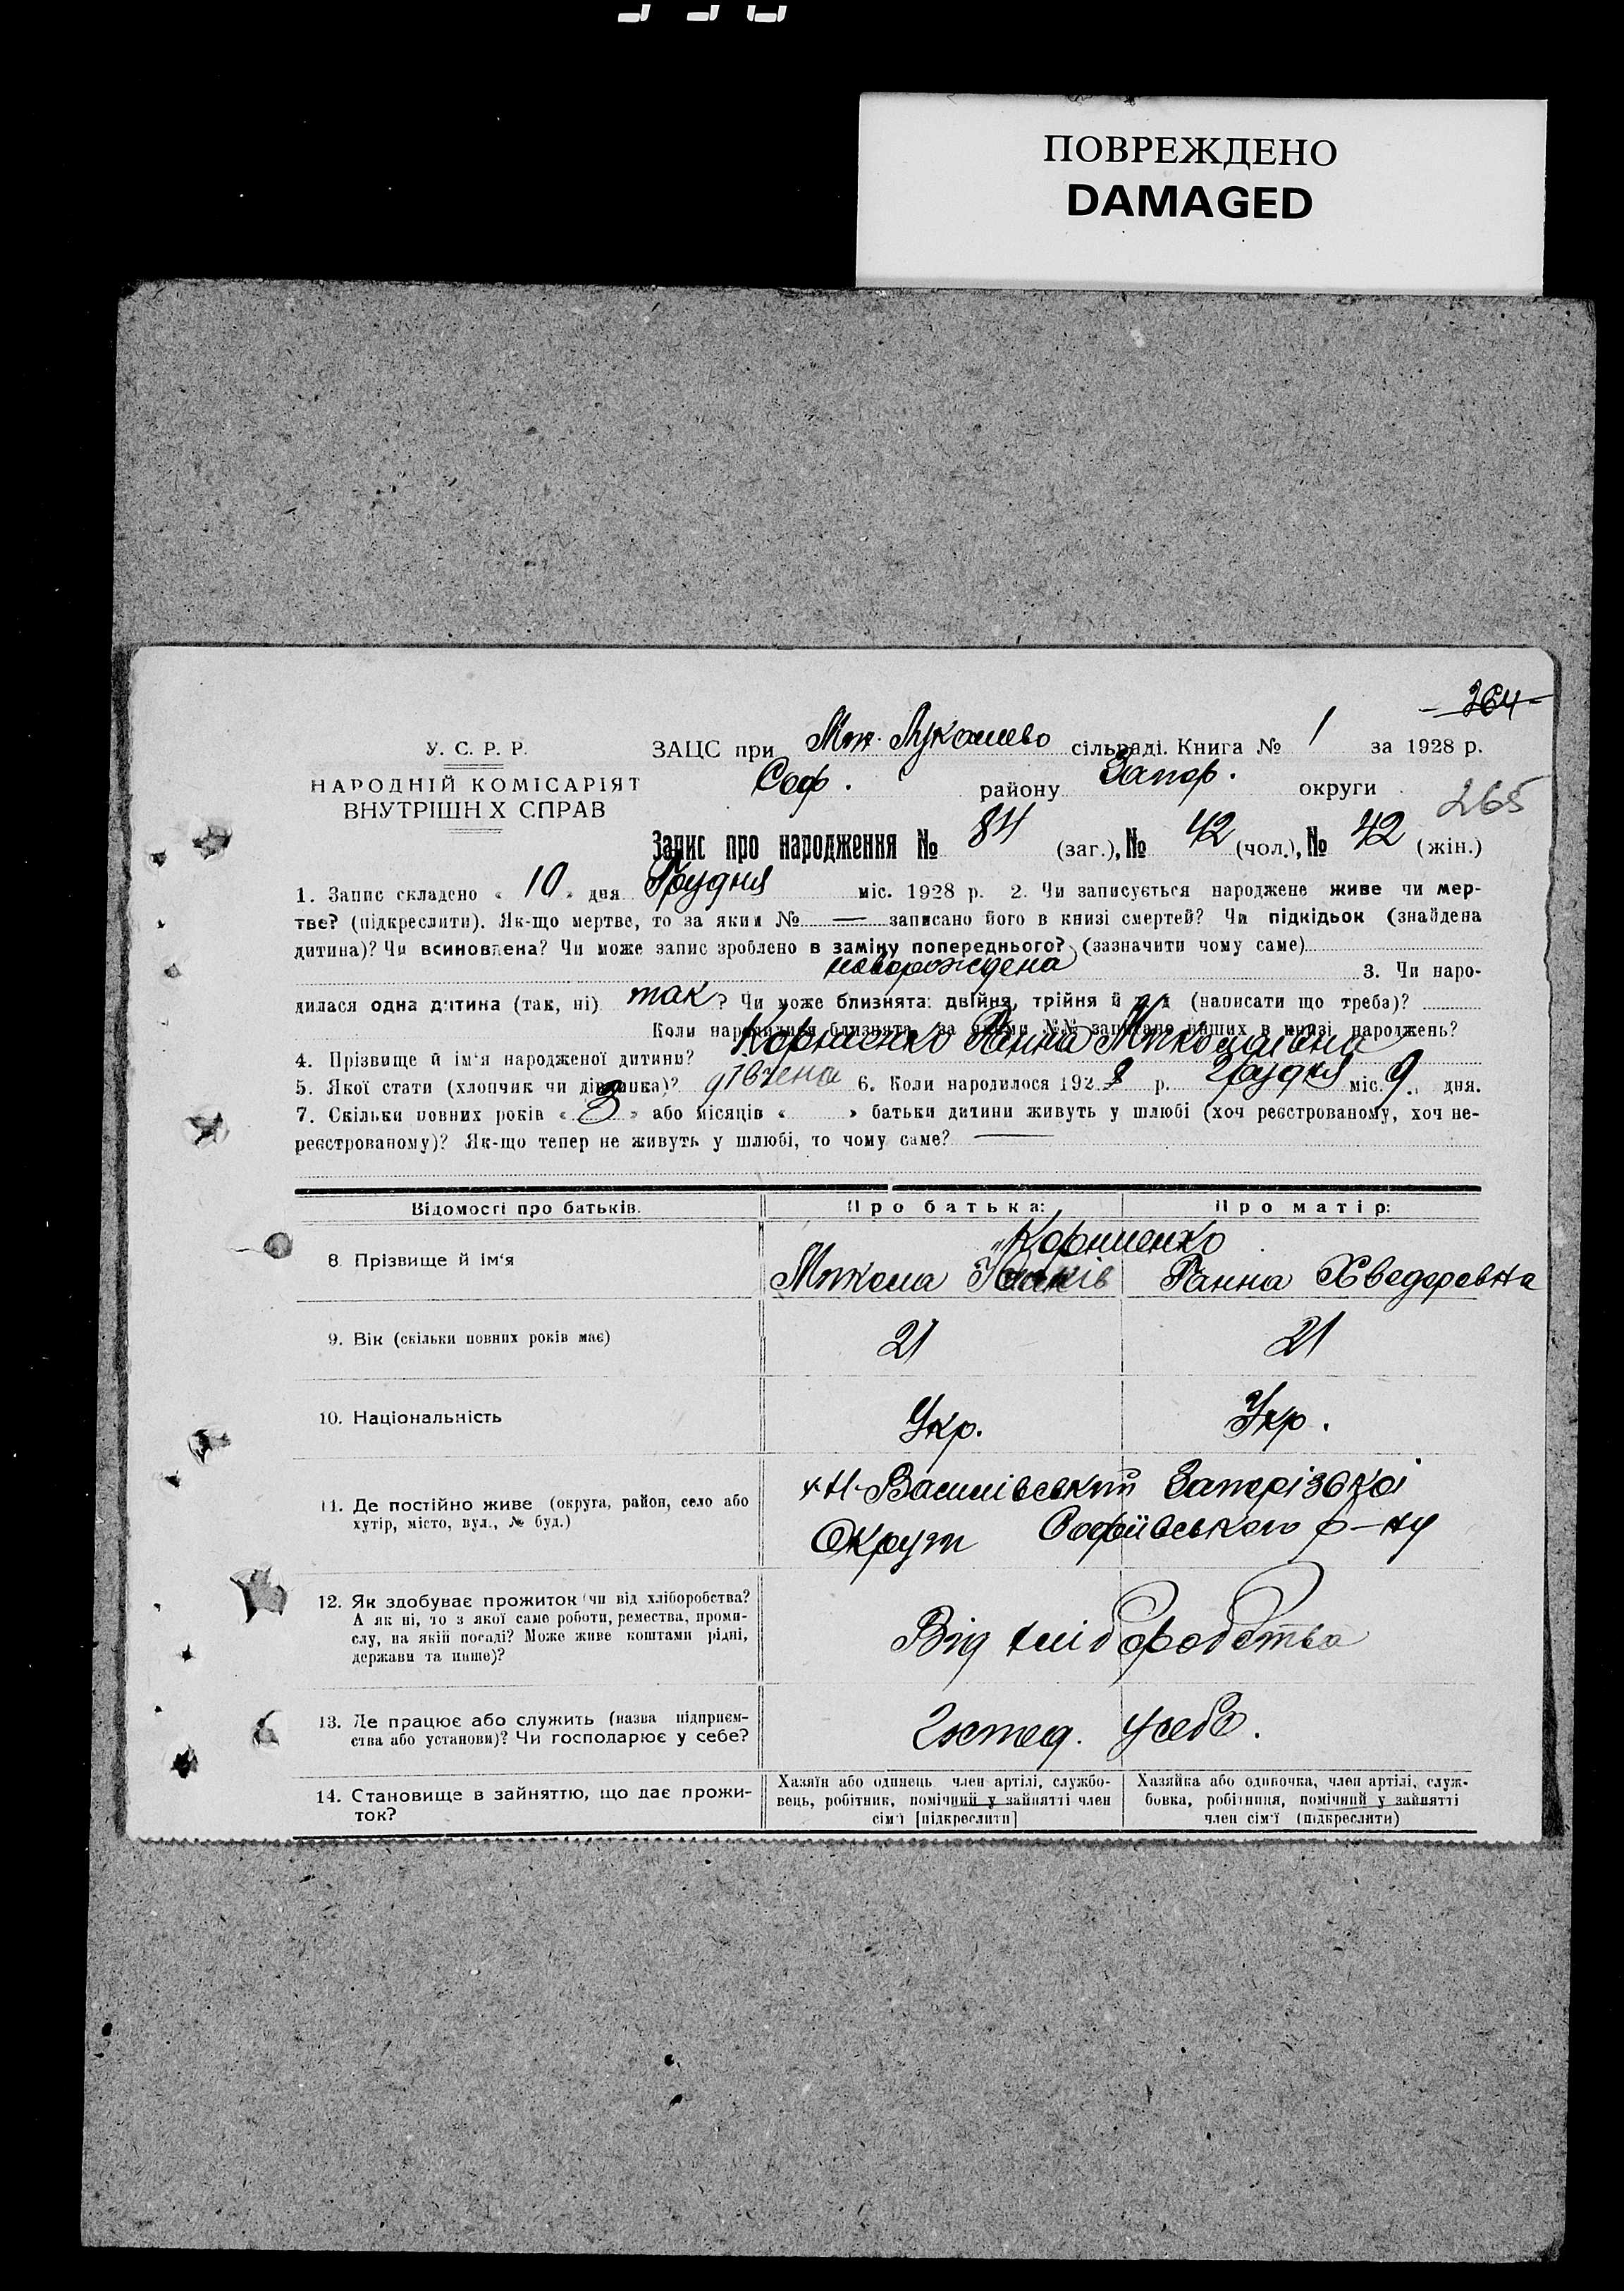 ПОВРЕЖДЕНО
DAMAGED
264
У. С. Р. Р.
НАРОДНІЙ КОМІСАРІЯТ
ВНУТРІШН Х СПРАВ
ЗАЦС при Мик. Лукашево сільраді. Книга № 1 за 1928 р.
Соф. району Запор. округи
265
Запис про народження № 84 (заг.), № 42 (чол.), № 42 (жін.)
1. Запис складено « 10 » дня Грудня міс. 1928 р. 2. Чи записується народжене живе чи мер-
тве? (підкреслити). Як-що мертве, то за яким № — записано його в книзі смертей? Чи підкідьок (знайдена
дитина)? Чи всиновлена? Чи може запис зроблено в заміну попереднього? (зазначити чому саме)
новорождена 3. Чи наро-
дилася одна дитина (так, ні) так ? Чи може близнята: двійня, трійня й т. д (написати що треба)?
Коли народилися близнята, за якими №№ записано інших в книзі народжень?
4. Прізвище й ім'я народженої дитини? Корниенко Ганна Миколаївна
5. Якої стати (хлопчик чи дівчинка)? дівчена 6. Коли народилося 192 8 р. Грудня міс. 9 дня.
7. Скільки повних років « 3 » або місяців « » батьки дитини живуть у шлюбі (хоч реєстрованому, хоч не-
реєстрованому)? Як-що тепер не живуть у шлюбі, то чому саме? —
Відомості про батьків. Про батька: Про матір:
8. Прізвище й ім'я
Корниенко
Микола Ганна Хведоревна
9. Вік (скільки повних років має) 21 21
10. Національність Укр. Укр.
11. Де постійно живе (округа, район, село або
хутір, місто, вул., № буд.)
х Н-Василівський Запорізької
Округи Софіївського р-ну
12. Як здобуває прожиток (чи від хліборобства?
А як ні, то з якої саме роботи, ремества, проми-
слу, на якій посаді? Може живе коштами рідні,
держави та инше)?
Від хліборобства
13. Де працює або служить (назва підприєм-
ства або установи)? Чи господарює у себе?
Господ. у себе.
14. Становище в зайняттю, що дає прожи-
ток?
Хазяїн або одинець, член артілі, службо-
вець, робітник, помічний у зайнятті член
сім'ї [підкреслити]
Хазяйка або одиночка, член артілі, служ-
бовка, робітниця, помічний у зайнятті
член сім'ї (підкреслити)